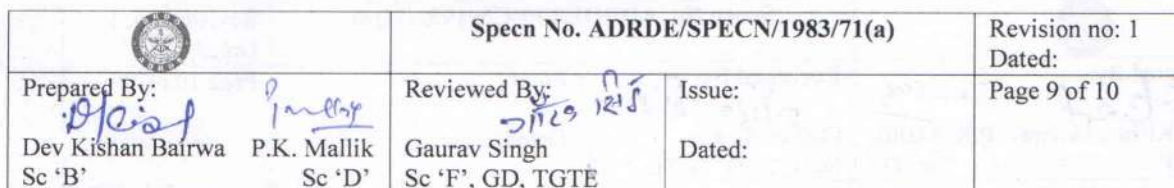 Specn No. ADRDE/SPECN/1983/71(a)
Revision no: 1
Dated:
Prepared By:
Dev Kishan Bairwa P.K. Mallik
Sc ‘B’ Sc ‘D’
Reviewed By:
Gaurav Singh
Sc ‘F’, GD, TGTE
Issue:
Dated:
Page 9 of 10